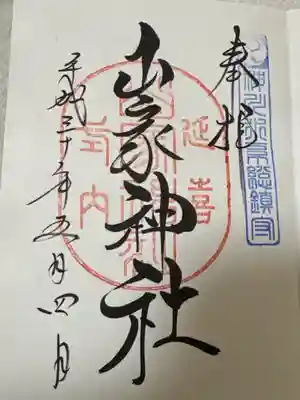 総鎮守
奉拝
延喜
山家神社
式内
平成三十年五月四日